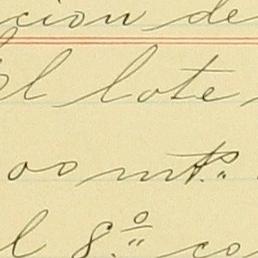 cion de
El lote
00 mts.
l 8º co